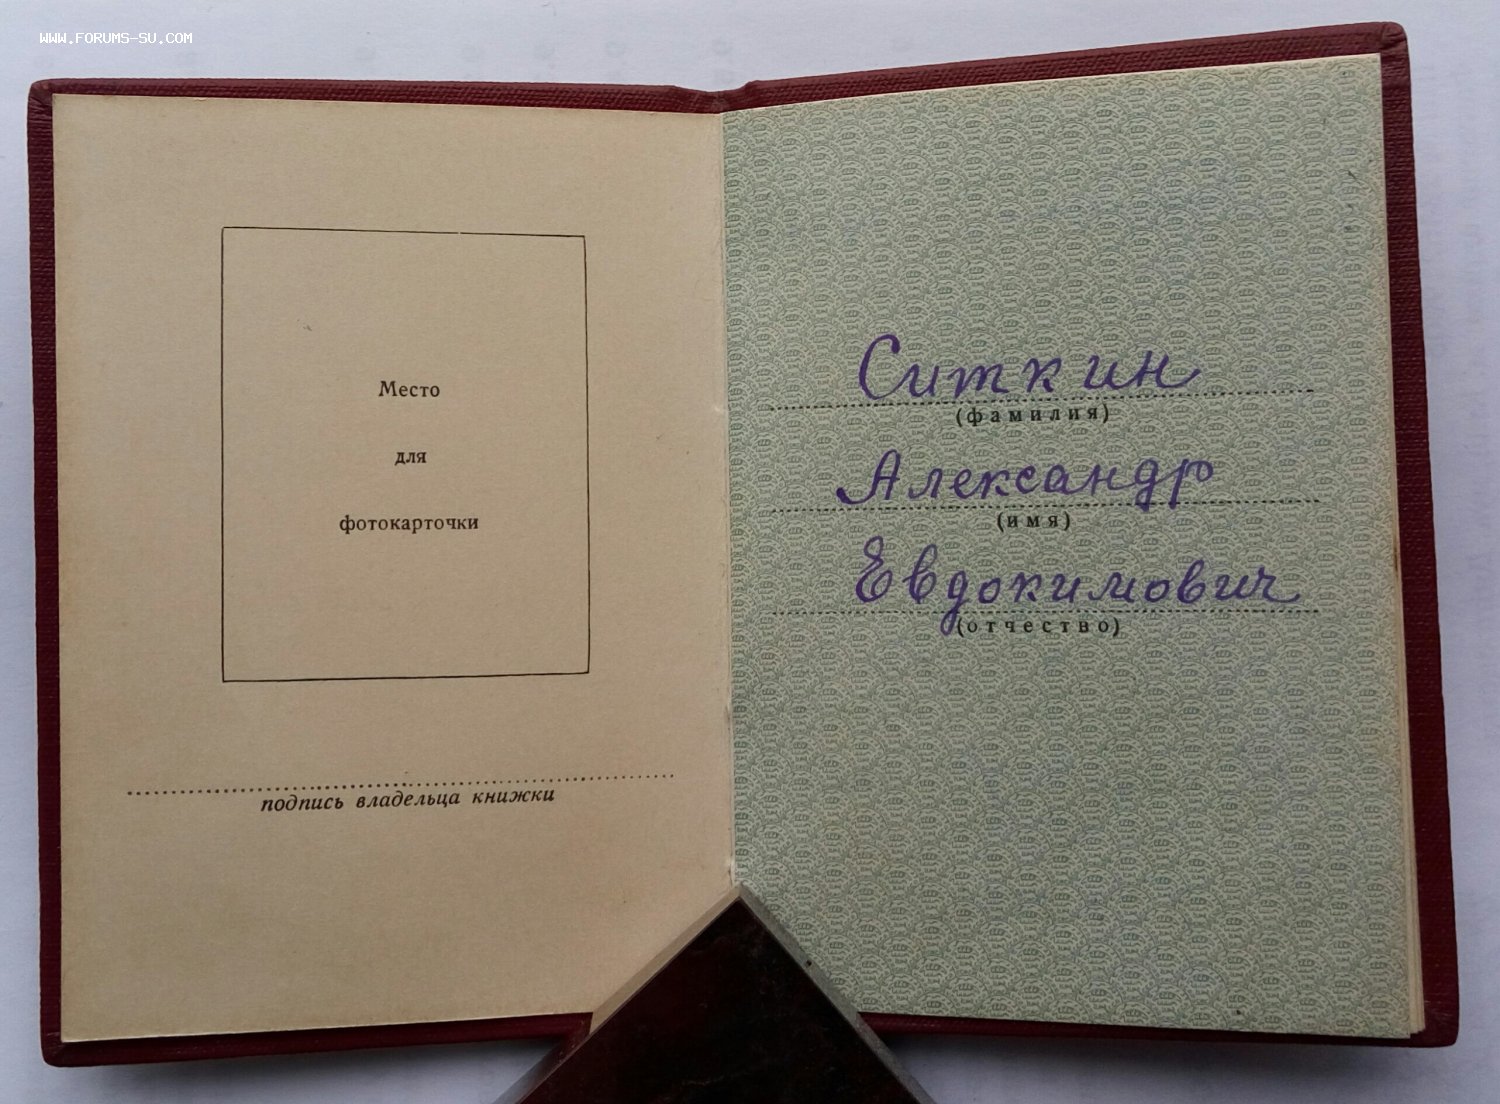 WWW.FORUMS-SU.COM
Место
для
фотокарточки
подпись владельца книжки
Ситкин
(фамилия)
Александр
(имя)
Евдокимович
(отчество)